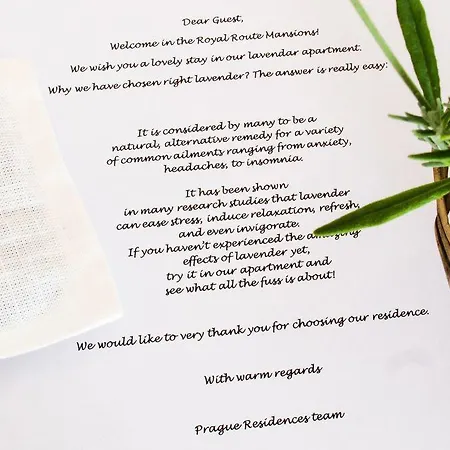 Dear Guest,
Welcome in the Royal Route Mansions!
We wish you a lovely stay in our lavendar apartment.
Why we have chosen right lavender? The answer is really easy:
It is considered by many to be a
natural, alternative remedy for a variety
of common ailments ranging from anxiety,
headaches, to insomnia.
It has been shown
in many research studies that lavender
can ease stress, induce relaxation, refresh,
and even invigorate.
If you haven't experienced the amazing
effects of lavender yet,
try it in our apartment and
see what all the fuss is about!
We would like to very thank you for choosing our residence.
With warm regards
Prague Residences team